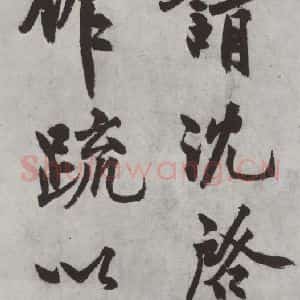 沈啓
作疏以
Shufawang.CN